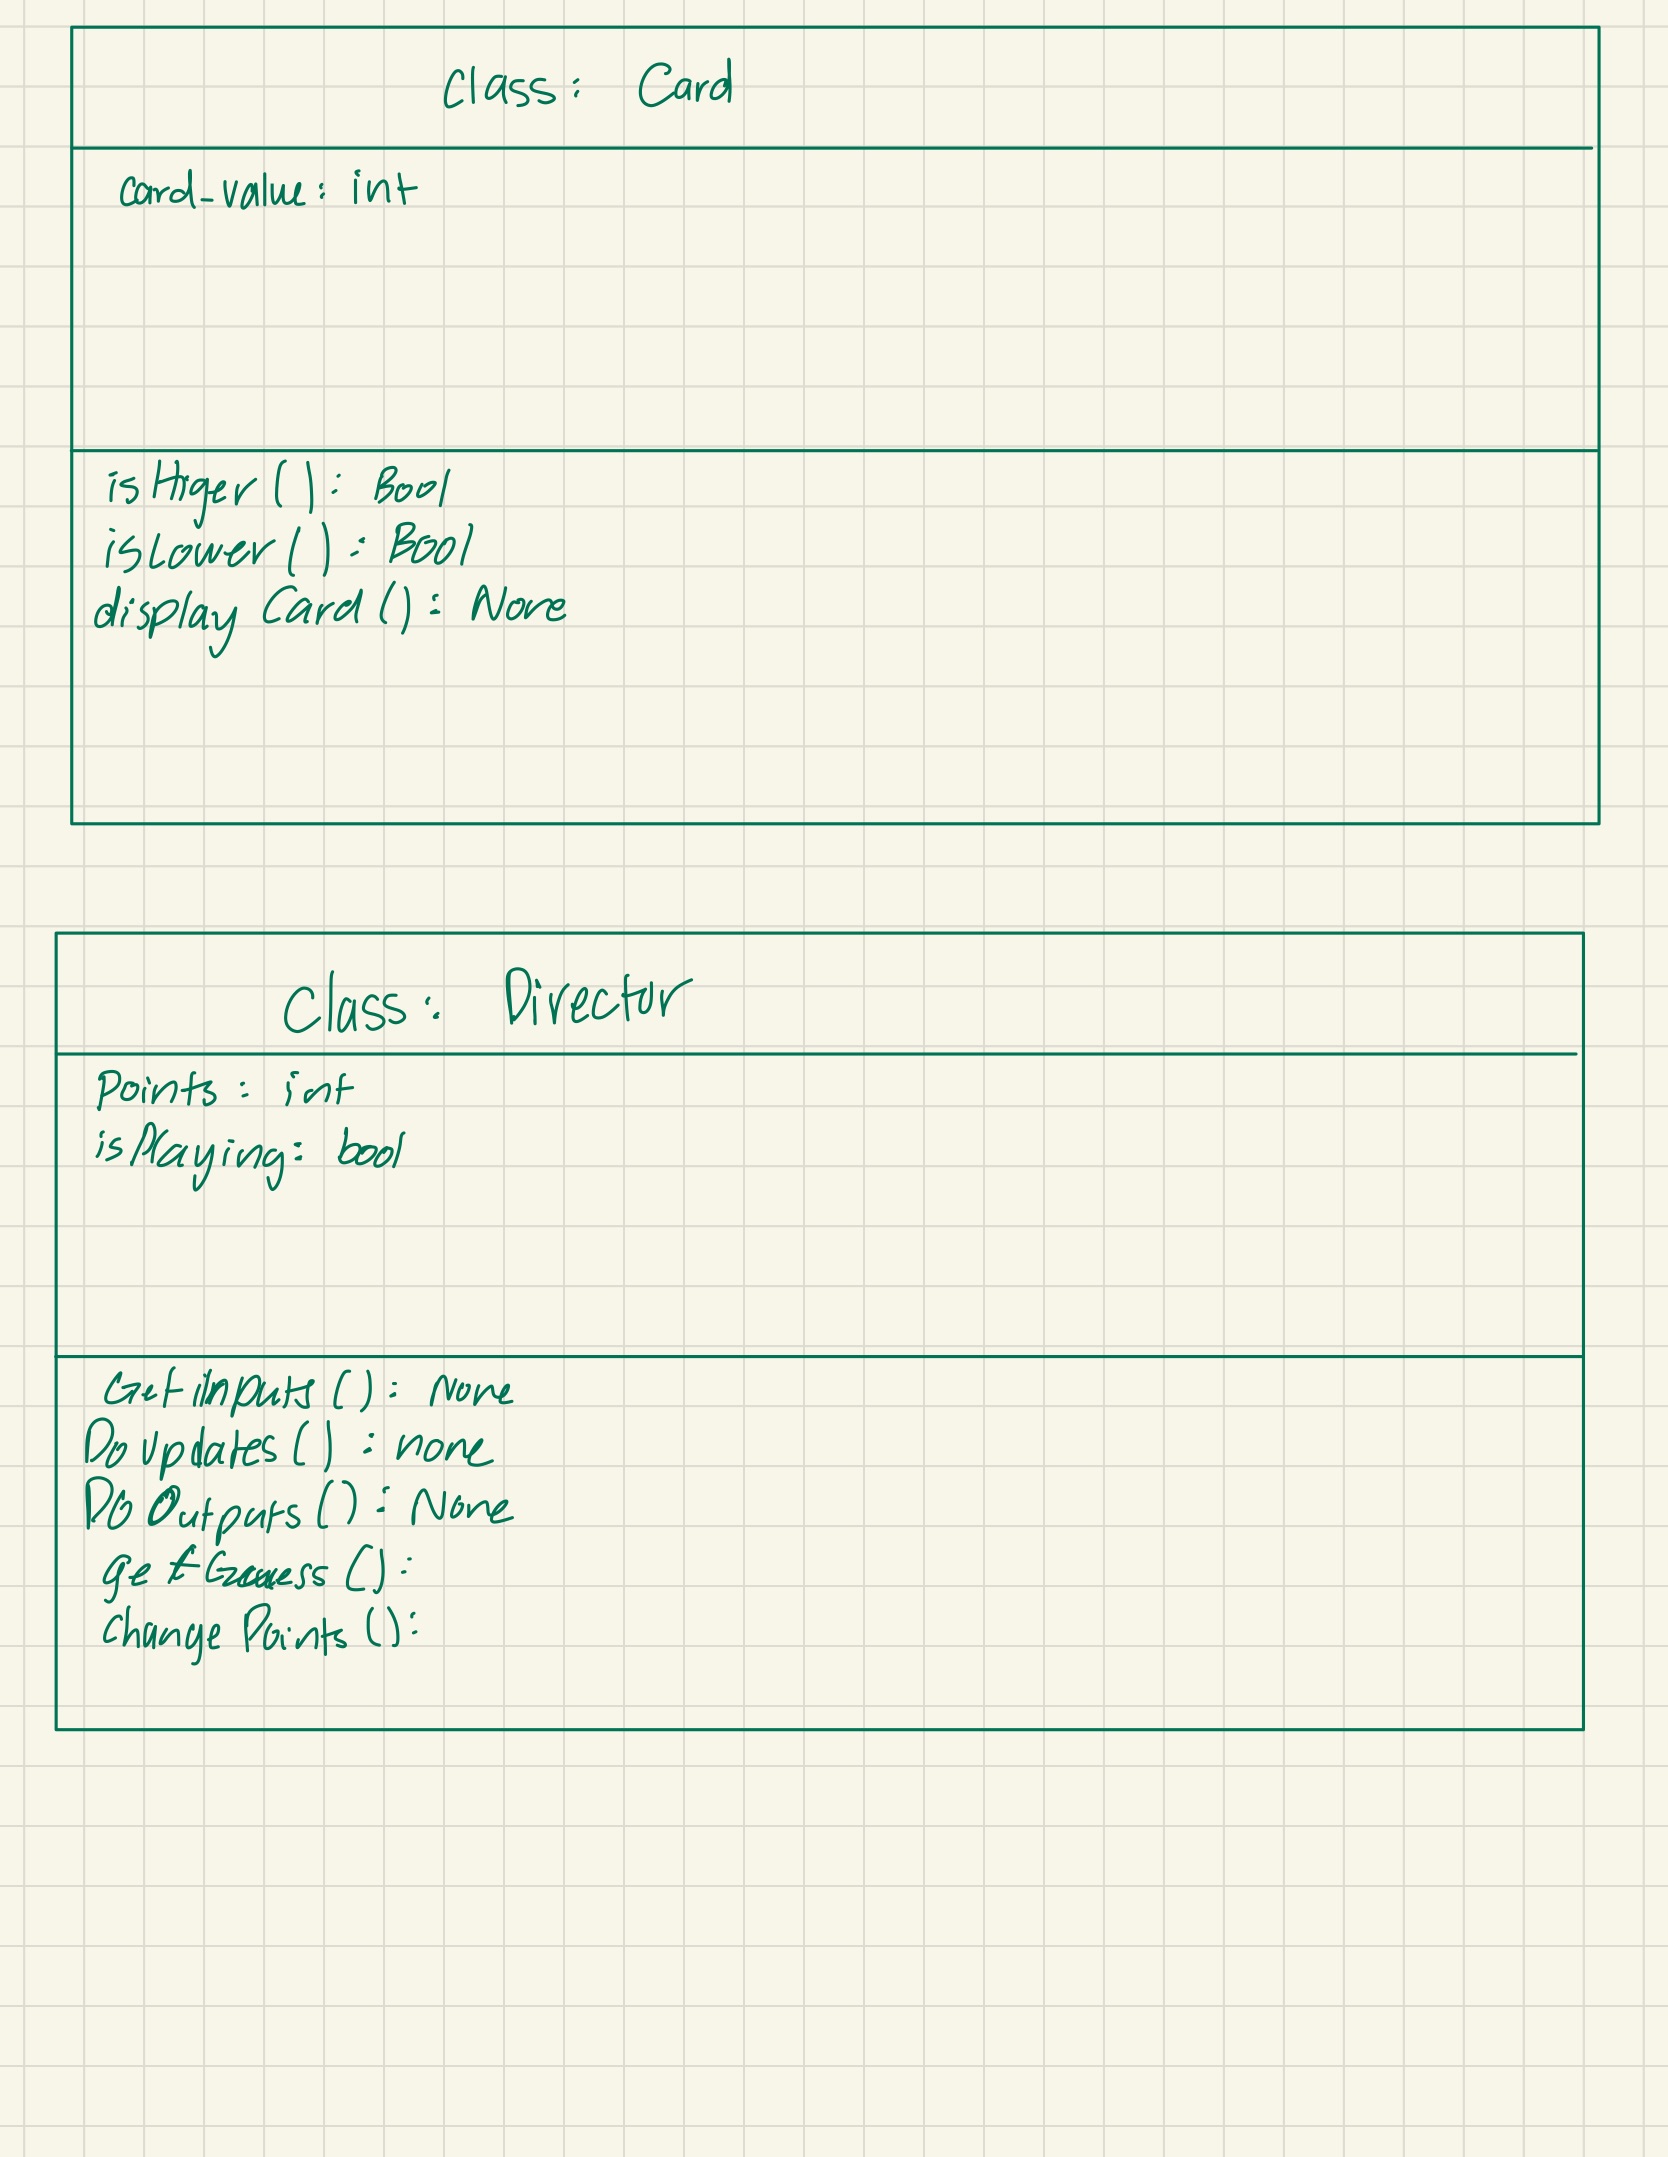 Class: Card
card_value: int
isHiger(): Bool
isLower(): Bool
display Card(): None
Class: Director
Points: int
isPlaying: bool
Get inputs(): None
Do updates(): none
Do Outputs(): None
get Guess():
change Points():